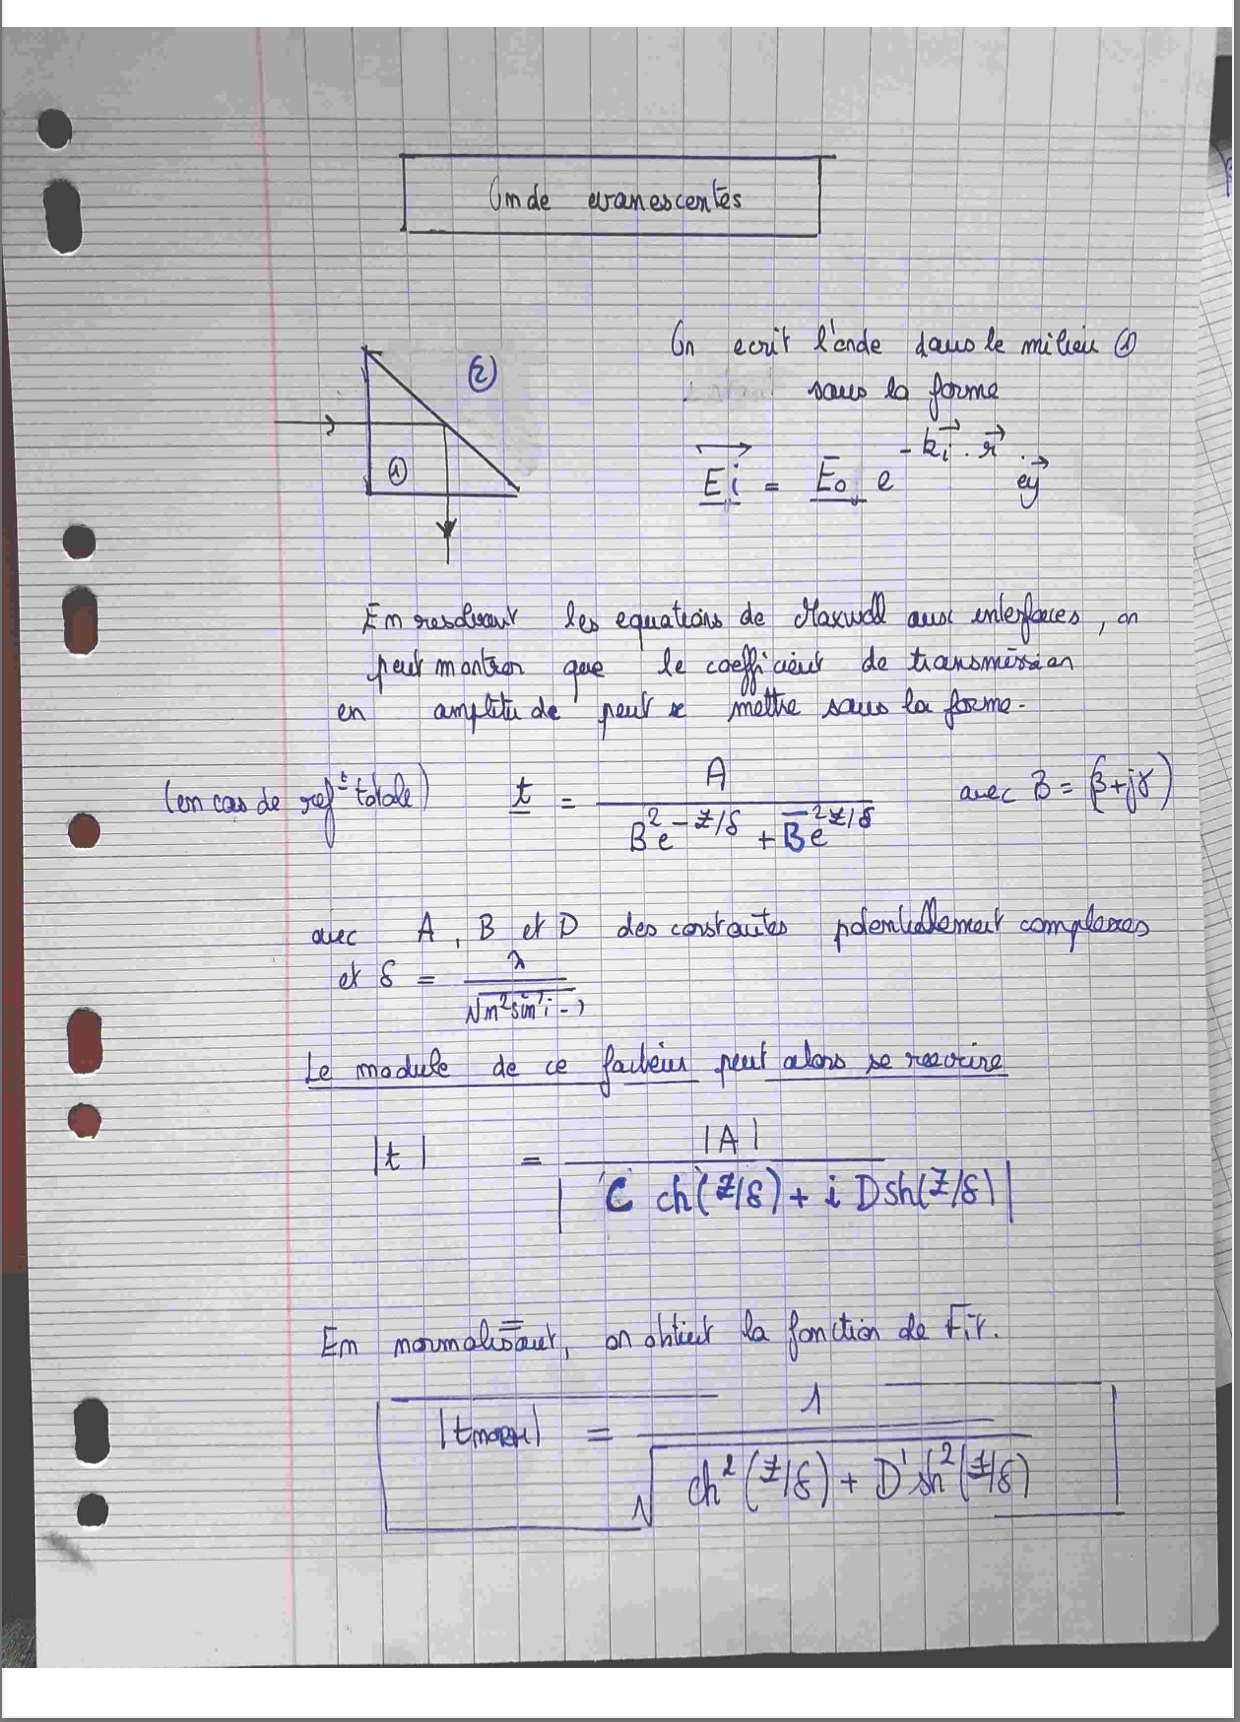 Onde evanescentes
② On ecrit l'onde dans le milieu ①
sous la forme
① Ei = E₀ e^{-ki.r} ey
En resolvant les equations de Maxwell aux interfaces, on
peut montrer que le coefficient de transmission
en amplitude peut se mettre sous la forme.
(en cas de refᵗ totale) t = A / (B² e^{-z/δ} + B̄² e^{z/δ}) avec B = (β+jγ)
avec A, B et D des constantes potentiellement complexes
et δ = λ / √(n² sin² i - 1)
Le module de ce facteur peut alors se reecrire
|t| = |A| / |C ch(z/δ) + i D sh(z/δ)|
En normalisant, on obtient la fonction de Fit.
|tnorm| = 1 / √(ch²(z/δ) + D' sh²(z/δ))